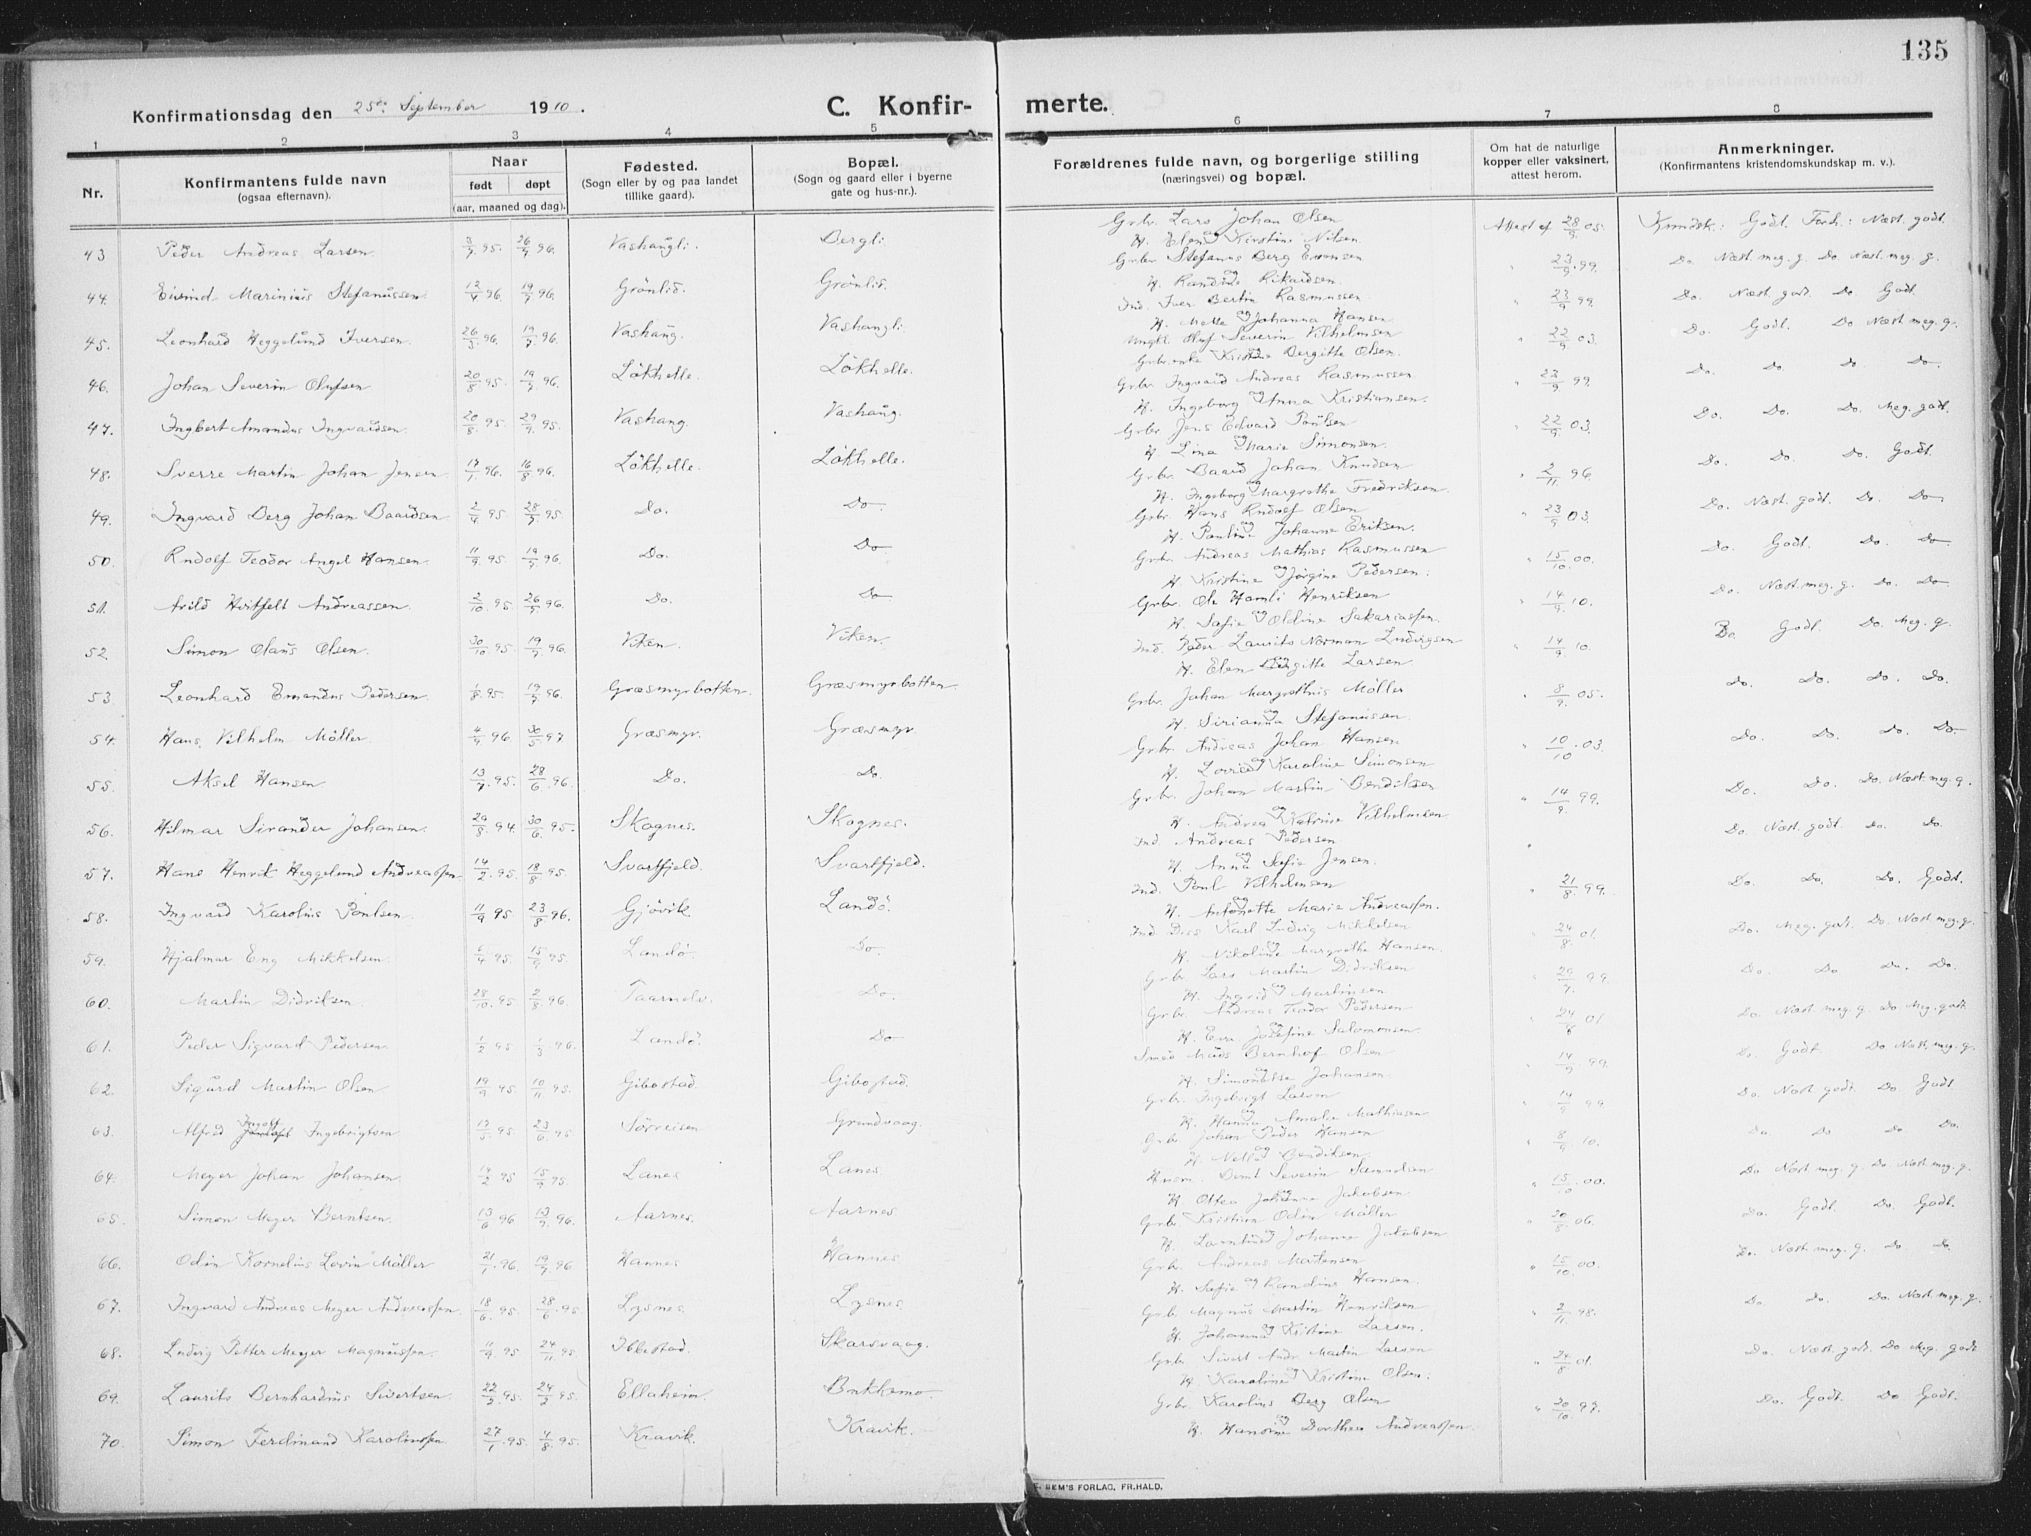 135
Konfirmationsdag den 25de September 1910.
C. Konfirmerte.
1 2 3 4 5 6 7 8
Nr.
Konfirmantens fulde navn
(ogsaa efternavn).
Naar
født døpt
(aar, maaned og dag).
Fødested.
(Sogn eller by og paa landet
tillike gaard).
Bopæl.
(Sogn og gaard eller i byerne
gate og hus-nr.).
Forældrenes fulde navn, og borgerlige stilling
(næringsvei) og bopæl.
Om hat de naturlige
kopper eller vaksinert,
attest herom.
Anmerkninger.
(Konfirmantens kristendomskundskap m. v.).
43 Peder Andreas Larsen 95. 26/7 96. Vashaugli. Bergli. Grbr. Lars Johan Olsen
H. Elen Kirstine Nilsen Attest af 28/9 05. Kundsk.: Godt. Forh.: Næst. godt.
44. Eivind Marinius Stefanussen. 12/4 96. 19/7 96. Grönlid. Grönlid. Grbr. Stefanus Berg Evensen
H. Randine Rikardsen. 23/9 99. Do. Næst. meg. g. Do Næst. meg. g.
45. Leonhard Heggelund Iversen. 26/3 96. 19/7 96. Vashaug. Vashaugli. Ind. Iver Bertin Rasmussen
H. Mette og Johanna Hansen 23/9 99. Do. Næst. godt. Do Godt
46. Johan Severin Olufsen 20/8 95. 19/7 96. Lökhelle. Lökhelle. Ungk. Oluf Severin Vilhelmsen
Grbr. enke Kristine Bergitte Olsen. 22/9 03. Do. Godt. Do Næst meg. g.
47. Ingbert Amandus Ingvardsen. 20/8 95. 29/9 95. Vashaug. Vashaug. Grbr. Ingvard Andreas Rasmussen
H. Ingeborg Anna Kristiansen. 23/9 99. Do. Do. Do. Do.
48. Sverre Martin Johan Jensen 17/1 96. 16/8 96. Lökhelle. Lökhelle. Grbr. Jens Edvard Poulsen
H. Lina og Marie Simonsen. 22/9 03. Do. Do. Do. Meg. godt.
49. Ingvard Berg Johan Baardsen 2/4 95 28/7 95. Do. Do. Grbr. Baard Johan Knudsen
H. Ingeborg og Margrethe Fredriksen. 2/11 96 Do. Do. Do. Godt.
50. Rudolf Teodor Angel Hansen. 11/9 95. 19/7 96. Do. Do. Grbr. Hans Rudolf Olsen
H. Pauline og Johanne Eriksen. 23/9 03. Do. Næst. godt. Do. Do
51. Arild Hvitfelt Andreassen. 2/10 95. 26/7 96. Do. Do. Grbr. Andreas Mathias Rasmussen
H. Kristine og Jörgine Pedersen. 15/10 00. Do. Godt. Do. Do
52. Simon Olaus Olsen. 30/10 95. 19/7 96. Viken. Viken. Grbr. Ole Hamli Henriksen
H. Sofie og Oldine Sakariassen. 14/9 10. Do. Næst. meg. g. Do. Do
53. Leonhard Emandus Pedersen. 1/8 95. 19/7 96. Græsmyrbotten. Græsmyrbotten. Ind. Peder Laurits Norman Ludvigsen
H. Elen Birgitte Larsen. 14/9 10. Do. Godt. Do. Meg. g.
54. Hans Vilhelm Möller. 4/9 96. 30/5 97 Græsmyr. Græsmyr Grbr. Johan Margrethus Möller
H. Sirianna Stefanussen. 8/9 05. Do. Do. Do. Do.
55. Aksel Hansen 13/7 95. 28/6 96. Do. Do. Grbr. Andreas Johan Hansen
H. Karoline Simonsen 10/10 03. Do. Do. Do. Do
56. Hilmar Sivander Johansen. 29/8 94. 30/6 95. Skognes. Skognes. Grbr. Johan Martin Bendiksen
H. Andrea og Katrine Vilhelmsen 14/9 99. Do. Do. Do. Næst meg. g.
57. Hans Henrik Heggelund Andreassen 14/2 95. 18/8 95. Svartfjeld. Svartfjeld. Ind. Andreas Pedersen
H. Anna og Sofie Jensen. Do. Næst. godt. Do. Do.
58. Ingvard Karolius Poulsen. 11/9 95 23/8 96. Gjövik. Landö. Ind. Poul Vilhelmsen
H. Antonette Marie Andreassen. 21/8 99. Do. Do. Do. Godt.
59. Hjalmar Eng Mikkelsen. 95. 15/9 95. Landö. Do. Ind. Karl Ludvig Mikkelsen
H. Nikoline og Margrethe Hansen. 24/8 01. Do. Meg. godt. Do. Næst meg. g.
60. Martin Didriksen. 28/10 95 2/8 96. Taarnelv. Do. Grbr. Lars Martin Didriksen
H. Ingrid og Martinsen 29/7 99 Do. Do. Do. Do.
61. Peder Sigvard Pedersen. 1/2 95 1/3 96. Landö. Do Grbr. Andreas Teodor Pedersen
H. Eva Josefine Salomonsen. 24/8 01. Do. Næst meg. g. Do Meg. godt.
62. Sigurd Martin Olsen 19/9 95 10/11 95. Gibostad. Gibostad. Smed Mads Bernhof Olsen
H. Simonette Johansen. 14/9 99. Do. Godt. Do Næst. meg. g.
63. Alfred Ingolf Ingebrigtsen 17/5 95. 23/6 95 Sörreisen Grundvaag. Grbr. Ingebrigt Larsen
H. Hanna og Amalie Mathiasen 14/9 99 Do Næst godt. Do. Godt
64. Meyer Johan Johansen 95 15/9 95. Lanes Lanes Grbr. Johan Peder Hansen
H. Bendiksen. 8/9 10. Do. Do Do Do.
65. Simon Meyer Berntsen. 13/6 96 13/9 96. Aarnes. Aarnes Husm. Bernt Severin Samuelsen
H. Ottea Johanne Jakobsen. 15/10 00. Do Næst meg. g. Do. Næst meg. g.
66. Odin Kornelius Lovin Möller 21/1 96. 19/7 96 Hannes Hannes Grbr. Kristian Odin Möller
H. Johanne Jakobsen 20/8 06. Do. Godt. Do. Godt.
67. Ingvard Andreas Meyer Andreassen. 18/6 95. 28/6 95. Lysnes. Lysnes. Grbr. Andreas Martensen
H. Sofie og Randine Hansen. 15/10 00. Do. Næst meg. g. Do. Do.
68. Ludvig Petter Meyer Magnussen. 11/9 95 24/11 95. Ibbestad. Skarsvaag. Grbr. Magnus Martin Henriksen
H. Johanna og Kristine Larsen. 2/11 98. Do. Do. Do. Næst meg. g.
69. Laurits Bernhardius Sivertsen 22/2 95. 24/3 95. Ellaheim Bukkemo. Grbr. Sivert Andr. Martin Larsen
H. Karoline og Kristine Olsen. 24/8 01. Do. Næst. godt. Do Meg. godt
70. Simon Ferdinand Karoliussen. 27/1 95. 4/8 95. Kravik. Kravik. Grbr. Karolius Berg Olsen
H. Hansine Dorthea Andreassen. 20/10 97. Do. Godt. Do Godt.
F. BEM'S FORLAG, FR.HALD.